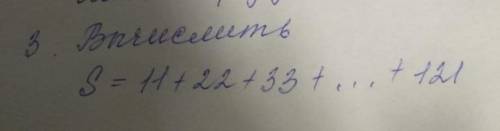 3. Вычислить
S = 11 + 22 + 33 + ... + 121